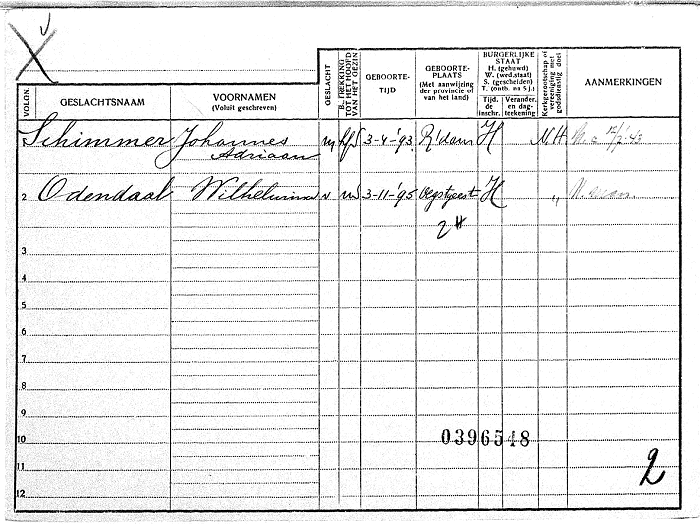 VOLGN.
GESLACHTSNAAM
VOORNAMEN
(Voluit geschreven)
GESLACHT
B. TREKKING
TOT HET HOOFD
VAN HET GEZIN
GEBOORTE-
TIJD
GEBOORTE-
PLAATS
(Met aanwijzing
der provincie of
van het land)
BURGERLIJKE
STAAT
H. (gehuwd)
W. (wed.staat)
S. (gescheiden)
T. (ontb. na 5 j.)
Tijd.
de
inschr.
Verander.
en dag-
teekening
Kerkgenootschap of
vereeniging met
godsdienstig doel
AANMERKINGEN
Schimmer Johannes m hfd 3-4-'93 R'dam H N.H
Adriaan
2 Odendaal Wilhelmina v 3-11-'95 Oegstgeest H "
2 H
3
4
5
6
7
8
9
10 0396548
11
2
12